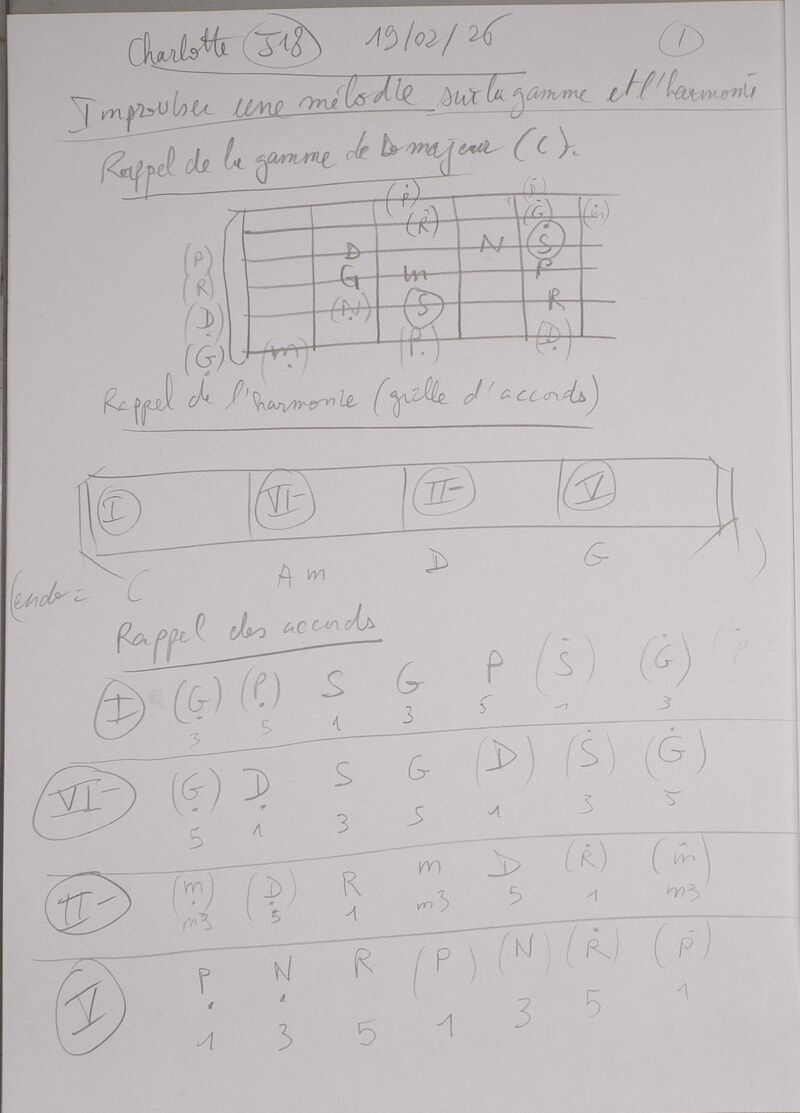 Charlotte J18 19/02/26 1
Improviser une mélodie sur la gamme et l'harmonie
Rappel de la gamme de Do majeur (C).
(Ṗ) (Ṗ)
(Ṙ) (Ġ) (ṁ)
D N Ṡ
(P) G m P
(R) (Ṇ) S R
(Ḍ) (ṃ) (P̣) (Ḍ)
(G̣)
Rappel de l'harmonie (grille d'accords)
I VI- II- V
(en do = C Am D G )
Rappel des accords
I (G̣) (P̣) S G P (Ṡ) (Ġ) (Ṗ)
3 5 1 3 5 1 3
VI- (G̣) Ḍ S G (D) (Ṡ) (Ġ)
5 1 3 5 1 3 5
II- (ṃ) (Ḍ) R m D (Ṙ) (ṁ)
m3 5 1 m3 5 1 m3
V P̣ Ṇ R (P) (N) (Ṙ) (Ṗ)
1 3 5 1 3 5 1